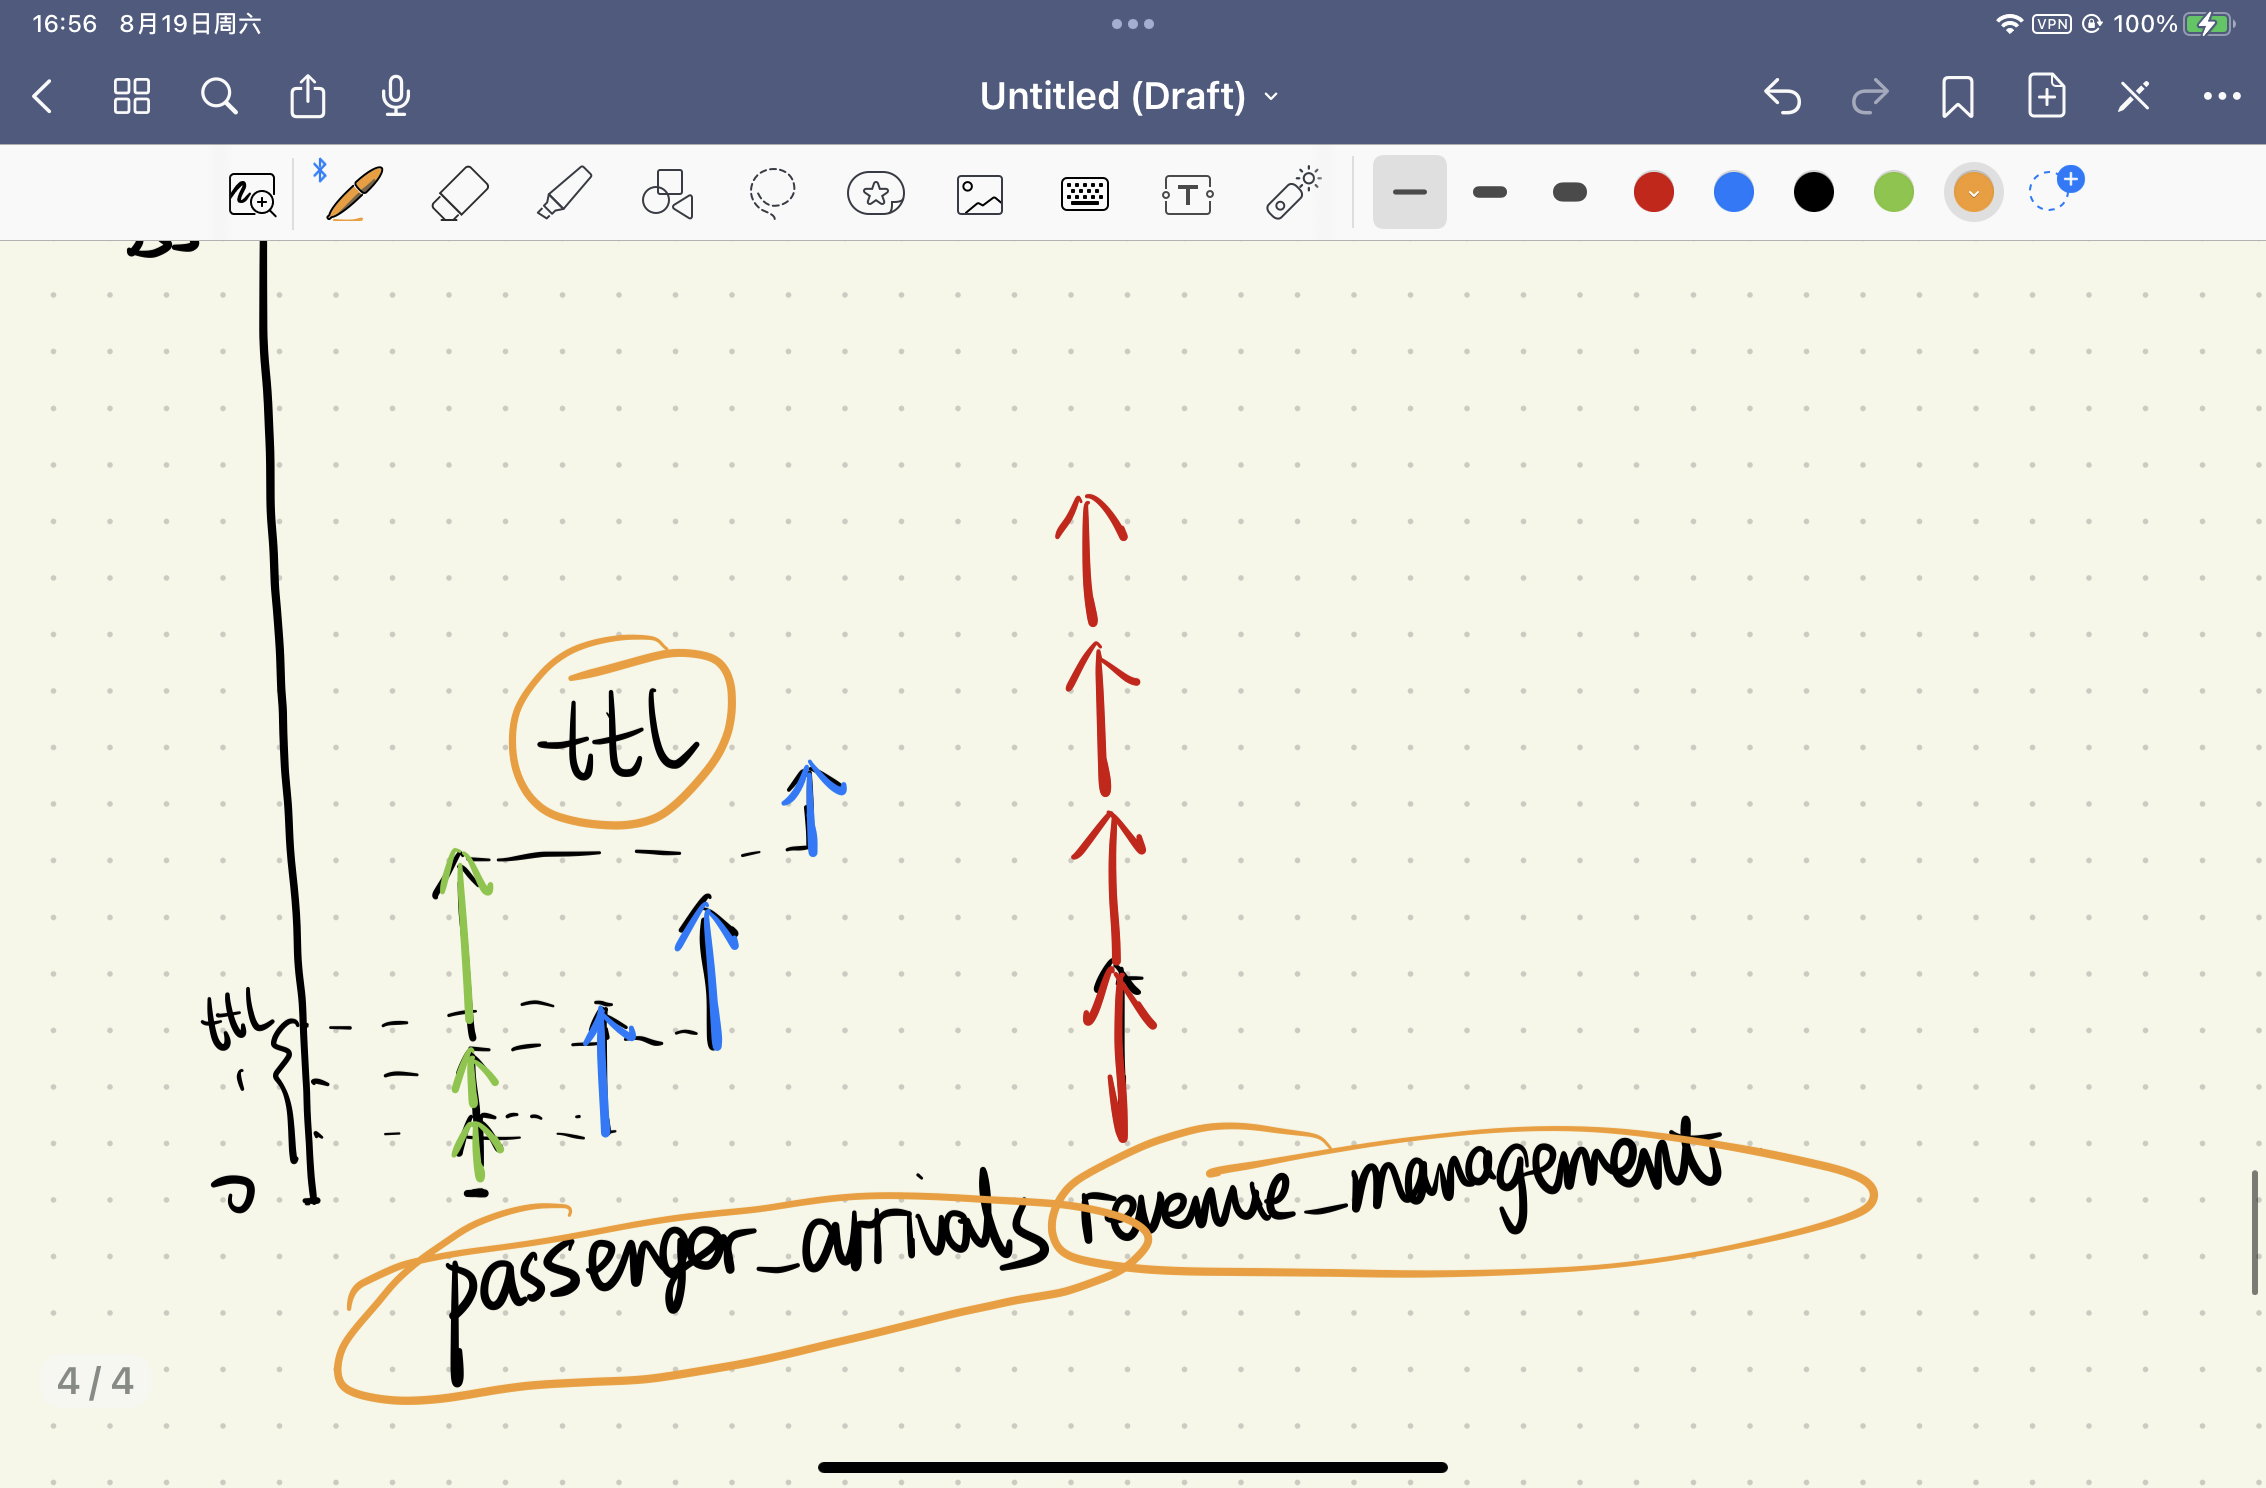 16:56 8月19日周六
VPN 100%
Untitled (Draft)
T
ttl
ttl
0
passenger_arrivals
revenue_management
4 / 4